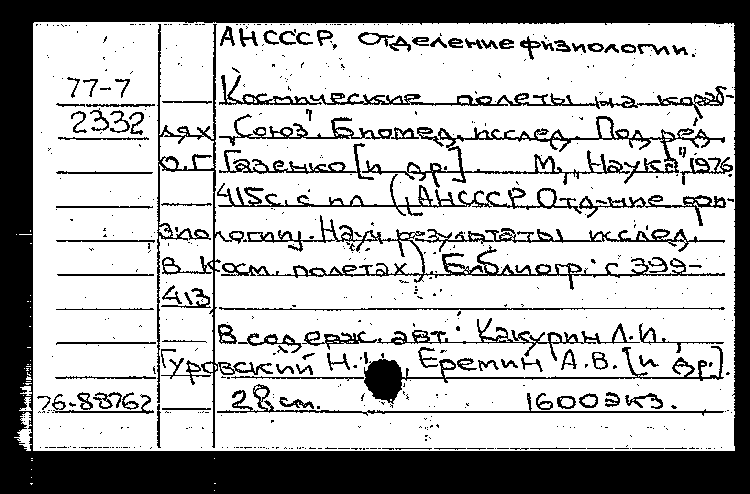 АН СССР. Отделение физиологии.
77-7
Космические полеты на кораб-
2332
лях "Союз". Биомед. исслед. Под ред.
О.Г Газенко [и др.] М., "Наука", 1976
415с. с ил. ([АН СССР. Отд-ние фи-
зиологии]. Науч. результаты исслед.
в косм. полетах). Библиогр.: с 399-
413
В содерж. авт.: Какурин Л.И.,
Гуровский Н. , Еремин А.В. [и др.].
76-88762 28 см. 1600экз.